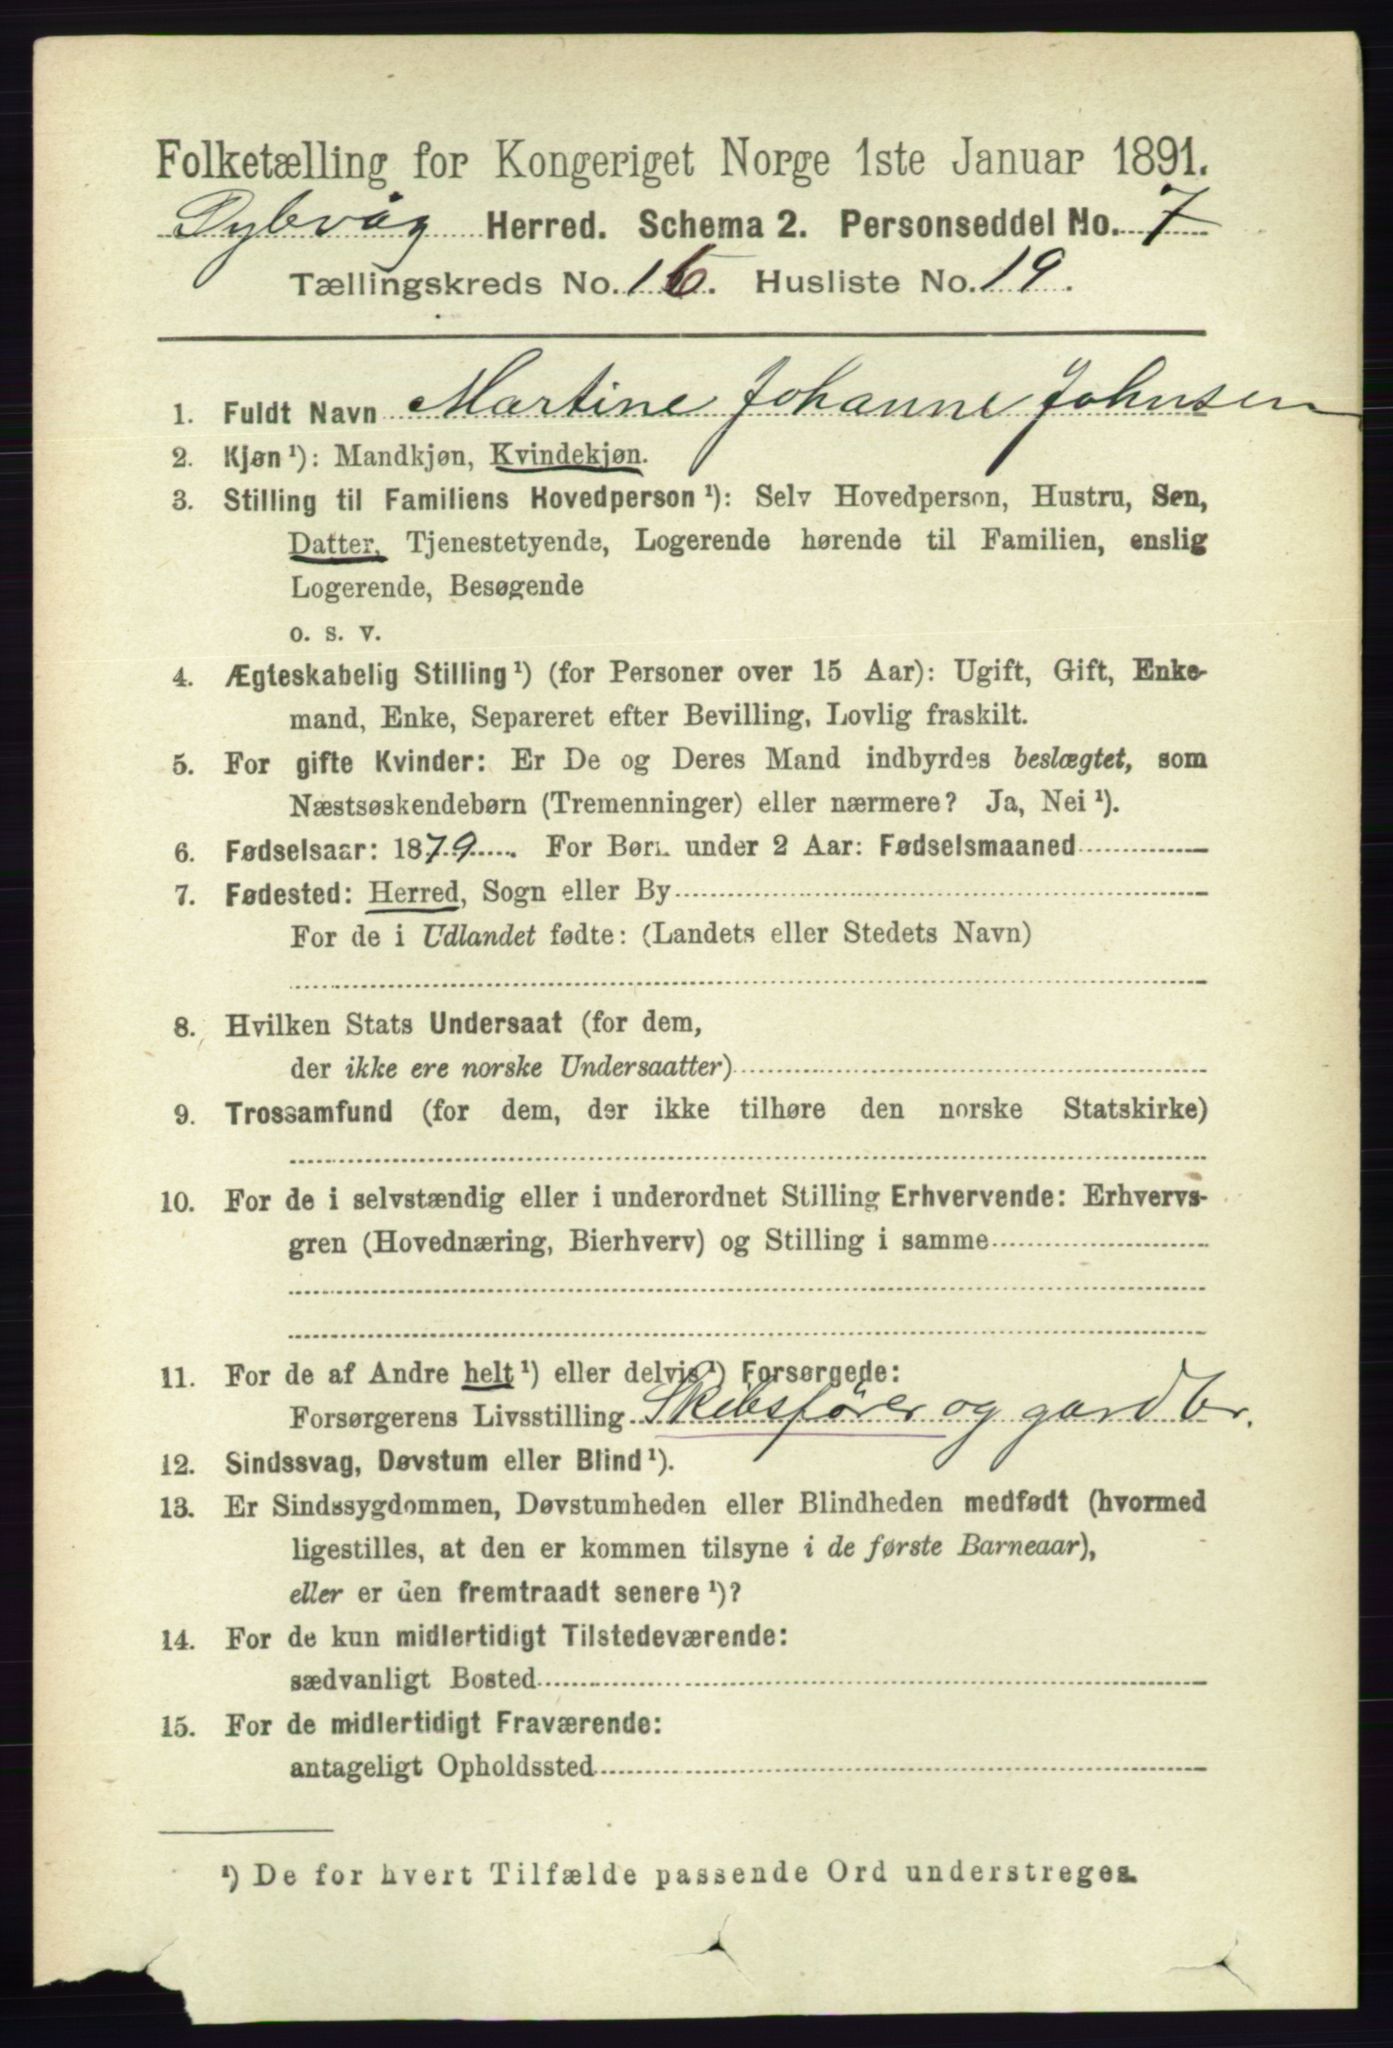 Folketælling for Kongeriget Norge 1ste Januar 1891.
Dybvåg Herred. Schema 2. Personseddel No. 7
Tællingskreds No. 16. Husliste No. 19.
1. Fuldt Navn Martine Johanne Johnsen
2. Kjøn ¹): Mandkjøn, Kvindekjøn.
3. Stilling til Familiens Hovedperson ¹): Selv Hovedperson, Hustru, Søn,
Datter, Tjenestetyende, Logerende hørende til Familien, enslig
Logerende, Besøgende
o. s. v.
4. Ægteskabelig Stilling ¹) (for Personer over 15 Aar): Ugift, Gift, Enke-
mand, Enke, Separeret efter Bevilling, Lovlig fraskilt.
5. For gifte Kvinder: Er De og Deres Mand indbyrdes beslægtet, som
Næstsøskendebørn (Tremenninger) eller nærmere? Ja, Nei ¹).
6. Fødselsaar: 1879. For Børn under 2 Aar: Fødselsmaaned
7. Fødested: Herred, Sogn eller By
For de i Udlandet fødte: (Landets eller Stedets Navn)
8. Hvilken Stats Undersaat (for dem,
der ikke ere norske Undersaatter)
9. Trossamfund (for dem, der ikke tilhøre den norske Statskirke)
10. For de i selvstændig eller i underordnet Stilling Erhvervende: Erhvervs-
gren (Hovednæring, Bierhverv) og Stilling i samme
11. For de af Andre helt ¹) eller delvis ¹) Forsørgede:
Forsørgerens Livsstilling Skibsfører og gardbr.
12. Sindssvag, Døvstum eller Blind ¹).
13. Er Sindssygdommen, Døvstumheden eller Blindheden medfødt (hvormed
ligestilles, at den er kommen tilsyne i de første Barneaar),
eller er den fremtraadt senere ¹)?
14. For de kun midlertidigt Tilstedeværende:
sædvanligt Bosted
15. For de midlertidigt Fraværende:
antageligt Opholdssted
¹) De for hvert Tilfælde passende Ord understreges.